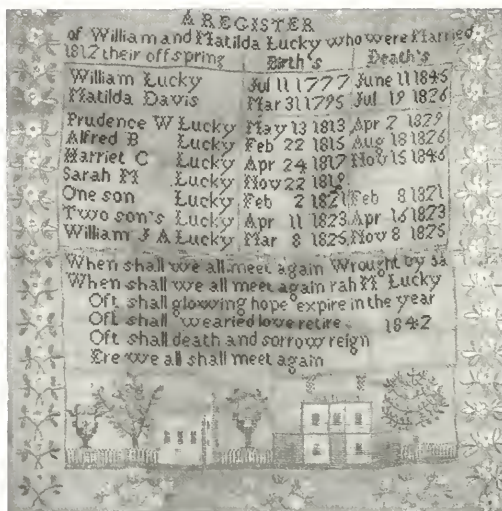 A REGISTER
of William and Matilda Lucky who were Married
1812 their offspring Birth's Death's
William Lucky Jul 11 1777 June 11 1845
Matilda Davis Mar 31 1795 Jul 19 1826
Prudence W Lucky May 13 1813 Apr 2 1829
Alfred B Lucky Feb 22 1815 Aug 18 1826
Harriet C Lucky Apr 24 1817 Nov 15 1846
Sarah M Lucky Nov 22 1819
One son Lucky Feb 2 1821 Feb 8 1821
Two son's Lucky Apr 11 1823 Apr 16 1823
William J A Lucky Mar 8 1825 Nov 8 1825
When shall we all meet again Wrought by Sa
When shall we all meet again rah M Lucky
Oft shall glowing hope expire in the year
Oft shall wearied love retire 1842
Oft shall death and sorrow reign
Ere we all shall meet again